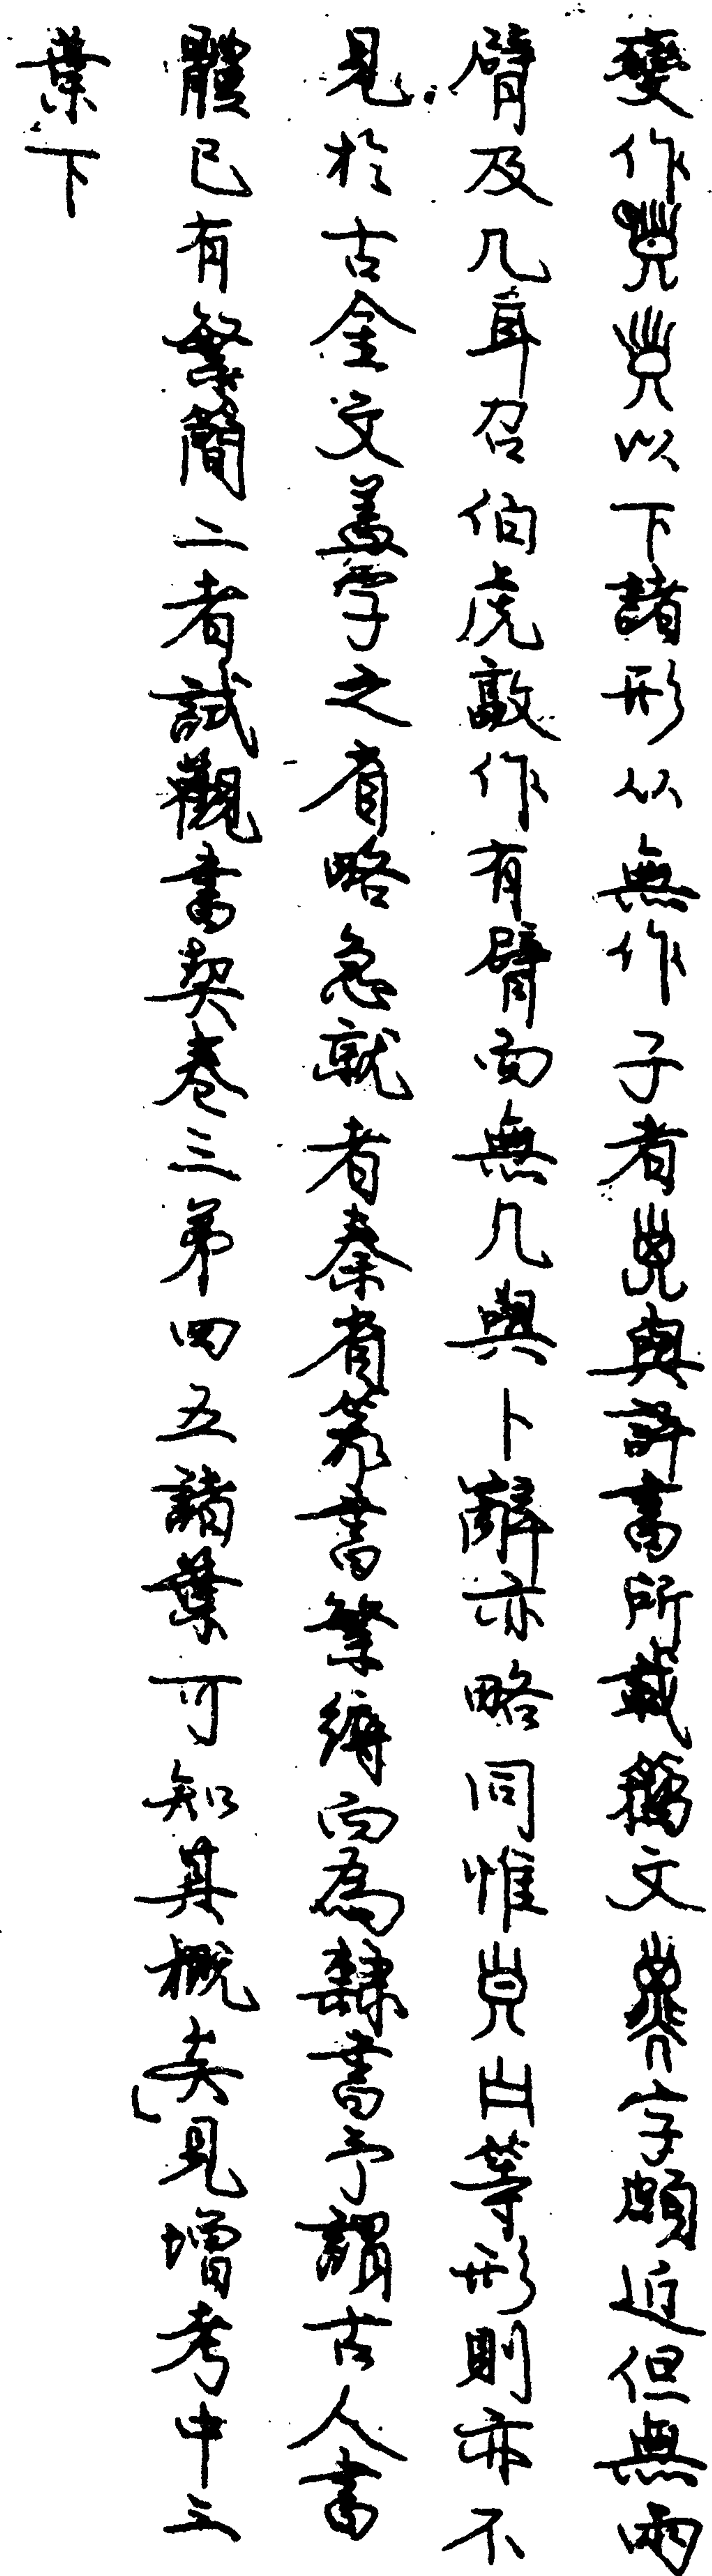 變作以下諸形从無作子者與許書所載籀文字頗近但無兩
臂及几耳召伯虎敦作有臂而無几與卜辭亦略同惟等形則亦不
見於古金文蓋字之省略急就者秦省篆書繁縟而為隸書予謂古人書
體已有繁簡二者試觀書契卷三第四五諸葉可知其概矣」見增考中三
葉下